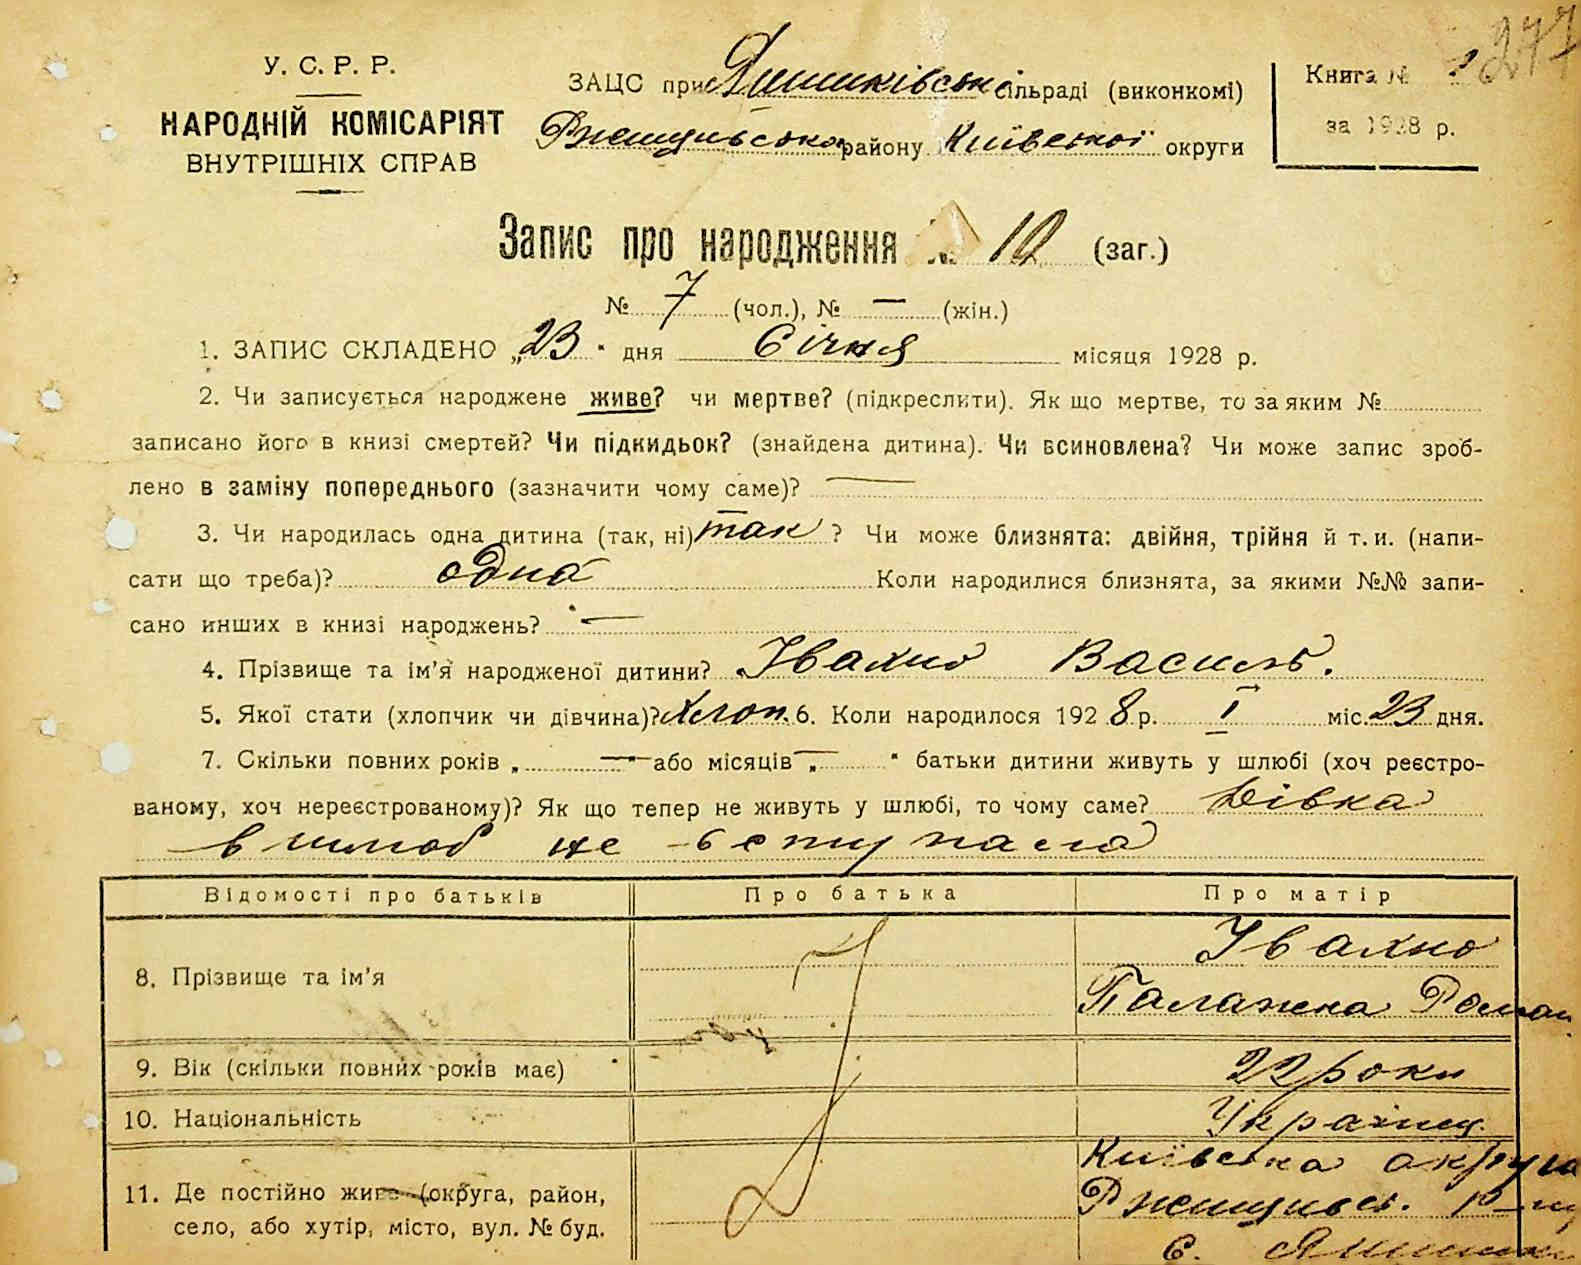 277
У. С. Р. Р.
НАРОДНІЙ КОМІСАРІЯТ
ВНУТРІШНІХ СПРАВ
ЗАЦС при Яшниківській сільраді (виконкомі)
Ржищівського району Київської округи
Книга №
за 1928 р.
Запис про народження № 10 (заг.)
№ 7 (чол.), № — (жін.)
1. ЗАПИС СКЛАДЕНО „23" дня Січня місяця 1928 р.
2. Чи записується народжене живе? чи мертве? (підкреслити). Як що мертве, то за яким №
записано його в книзі смертей? Чи підкидьок? (знайдена дитина). Чи всиновлена? Чи може запис зроб-
лено в заміну попереднього (зазначити чому саме)? —
3. Чи народилась одна дитина (так, ні) так ? Чи може близнята: двійня, трійня й т. и. (напи-
сати що треба)? одна Коли народилися близнята, за якими №№ запи-
сано инших в книзі народжень? —
4. Прізвище та ім'я народженої дитини? Івахно Василь.
5. Якої стати (хлопчик чи дівчина)? Хлоп. 6. Коли народилося 1928 р. I міс. 23 дня.
7. Скільки повних років „ — " або місяців „ — " батьки дитини живуть у шлюбі (хоч реєстро-
ваному, хоч нереєстрованому)? Як що тепер не живуть у шлюбі, то чому саме? Дівка
в шлюб не вступала
Відомості про батьків Про батька Про матір
8. Прізвище та ім'я Івахно
Палажка Роман.
9. Вік (скільки повних років має) 22 роки
10. Національність Українц.
11. Де постійно живе (округа, район, Київська округа
село, або хутір, місто, вул. № буд. Ржищивськ. р-ну
с.